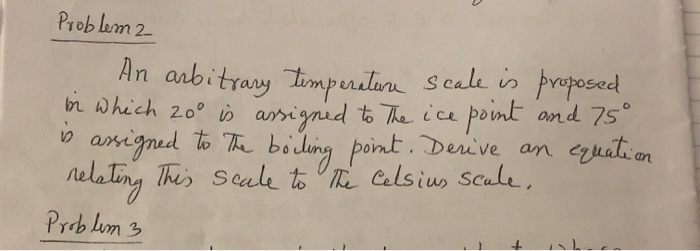 Problem 2
An arbitrary temperature scale is proposed
in which 20° is assigned to The ice point and 75°
is assigned to The boiling point. Derive an equation
relating This scale to The Celsius scale.
Problem 3